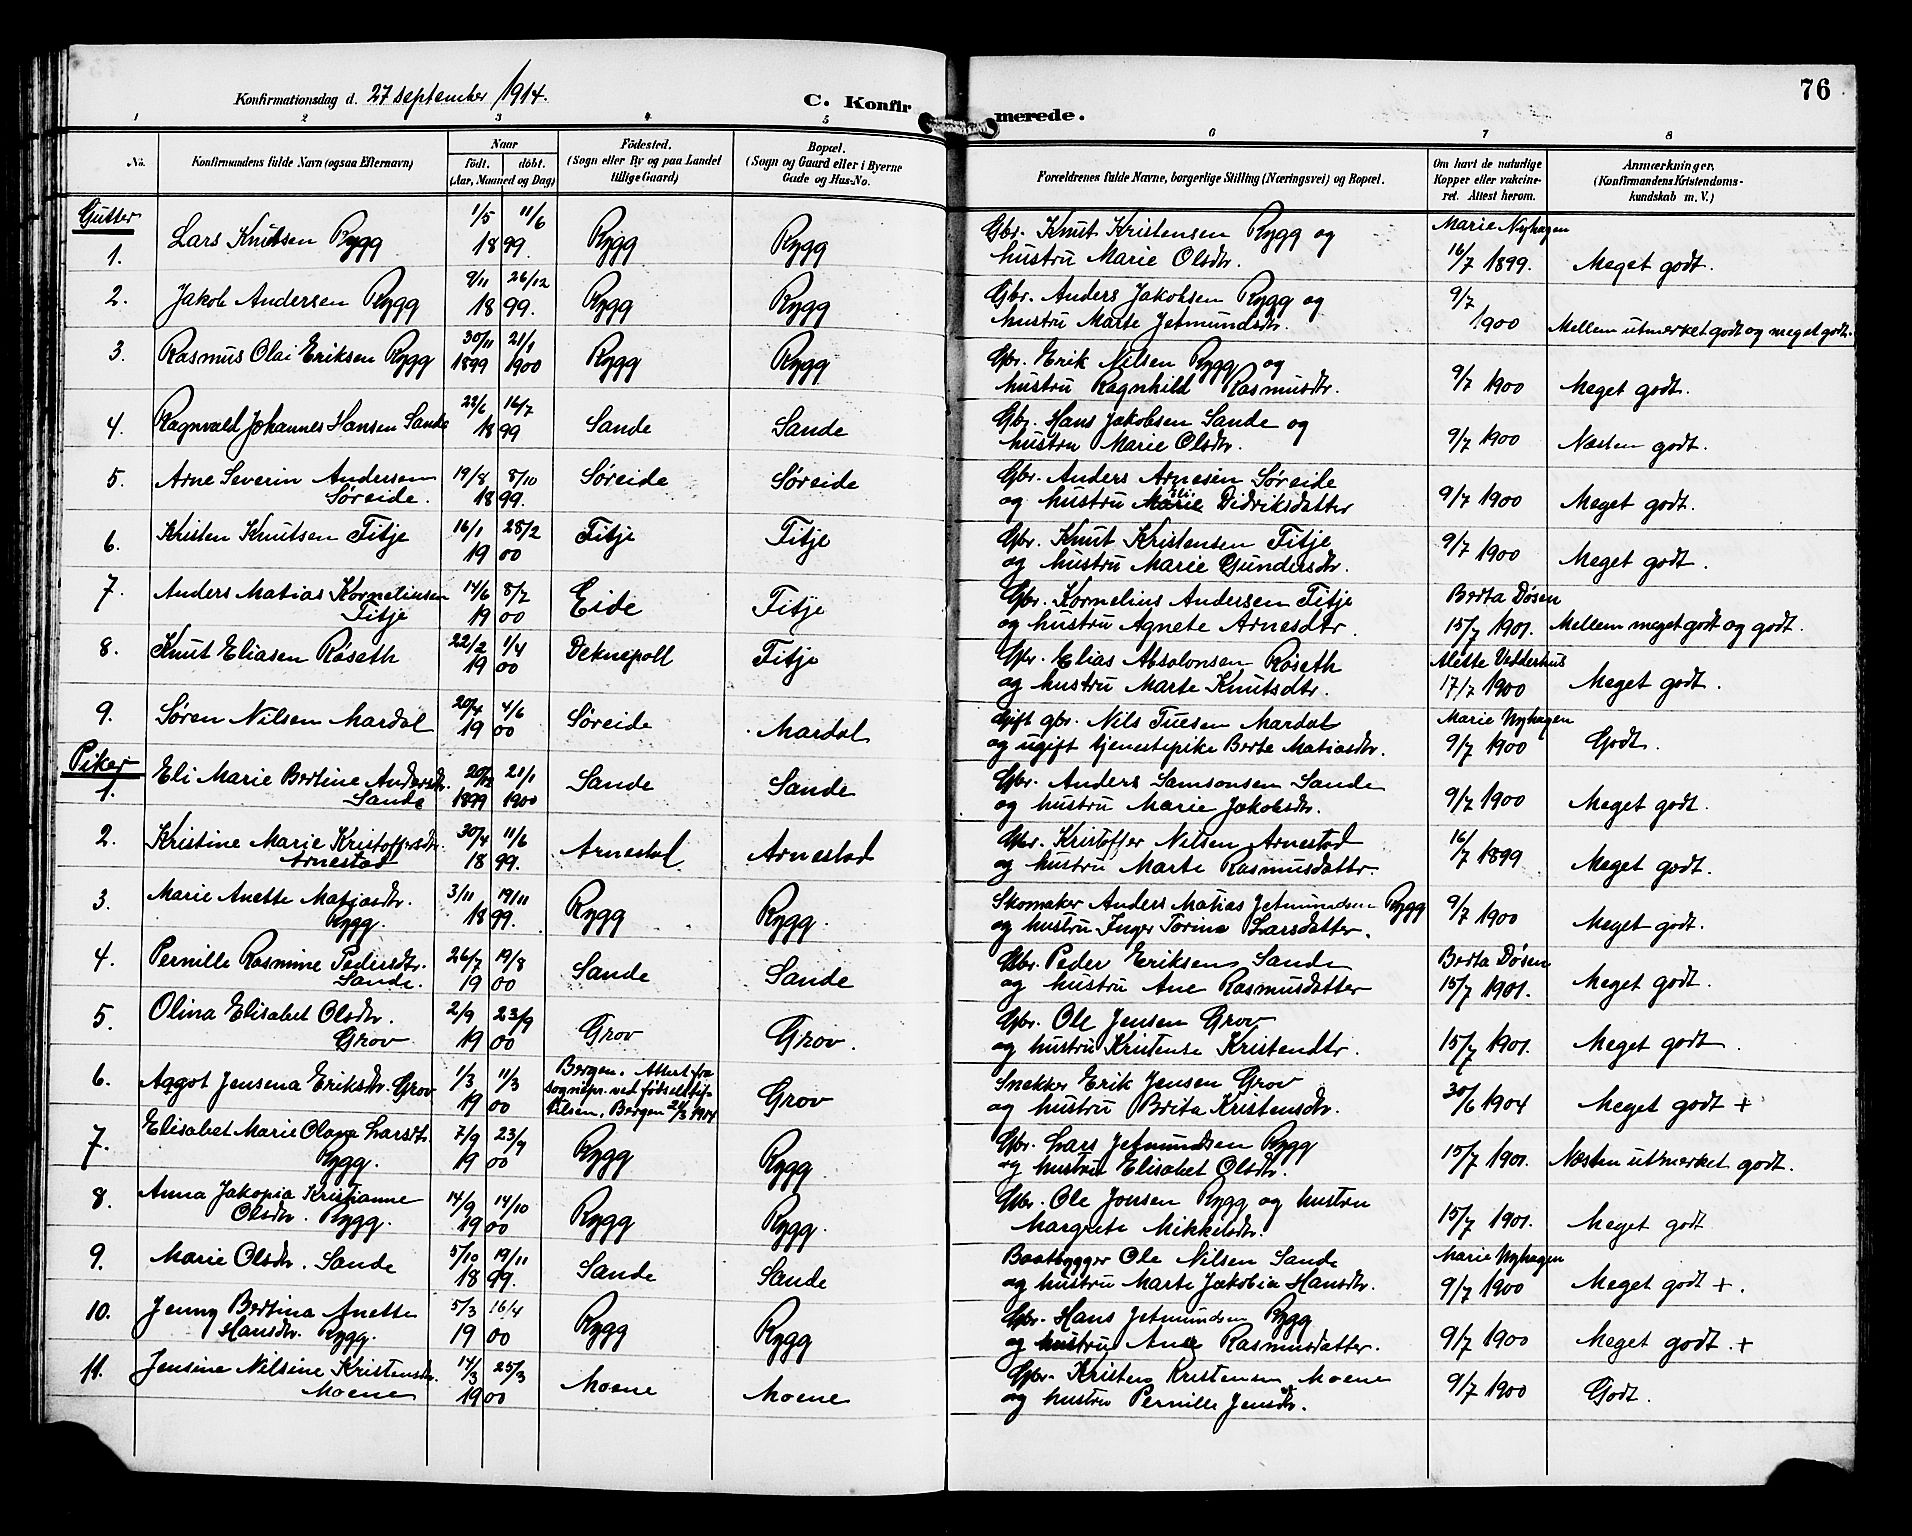 76
Konfirmationsdag d. 27 september 1914.
C. Konfirmerede.
1 2 3 4 5 6 7 8
No. Konfirmandens fulde Navn (ogsaa Efternavn) Naar födt. döbt. (Aar, Maaned og Dag) Födested. (Sogn eller By og paa Landet tillige Gaard) Bopæl. (Sogn og Gaard eller i Byerne Gade og Hus-No. Forældrenes fulde Navne, borgerlige Stilling (Næringsvei) og Bopæl. Om havt de naturlige Kopper eller vakcineret. Attest herom. Anmærkninger. (Konfirmandens Kristendomskundskab m. V.)
Gutter
1. Lars Knutsen Rygg 1/5 11/6 1899. Rygg Rygg Gbr. Knut Kristensen Rygg og hustru Marie Olsdtr. Marie Nyhagen 16/7 1899. Meget godt.
2. Jakob Andersen Rygg 9/11 26/12 1899. Rygg Rygg Gbr. Anders Jakobsen Rygg og hustru Marte Jetmundsdtr. 9/7 1900 Mellem utmerket godt og meget godt.
3. Rasmus Olai Eriksen Rygg 30/11 1899 21/1 1900 Rygg Rygg Gbr. Erik Nilsen Rygg og hustru Ragnhild Rasmusdtr. 9/7 1900 Meget godt.
4. Ragnvald Johannes Hansen Sande 22/6 16/7 1899 Sande Sande Gbr. Hans Jakobsen Sande og hustru Marie Olsdtr. 9/7 1900 Næsten godt.
5. Arne Severin Andersen Søreide. 19/8 8/10 1899. Søreide Søreide Gbr. Anders Arnesen Søreide og hustru Marie Didriksdatter 9/7 1900 Meget godt.
6. Kristen Knutsen Fitje 16/1 28/2 1900 Fitje Fitje Gbr. Knut Kristensen Fitje og hustru Marie Gundersdtr. 9/7 1900 Meget godt.
7. Anders Matias Korneliusen Fitje 14/6 8/7 1900 Eide Fitje Gbr. Kornelius Andersen Fitje og hustru Agnete Arnesdtr. Berta Døsen 15/7 1901. Mellem meget godt og godt.
8. Knut Eliasen Røseth 22/2 1/4 1900 Deknepoll Fitje Gbr. Elias Absolonsen Røseth og hustru Marte Knutsdtr. Alette Vedderhus 17/7 1900 Meget godt.
9. Søren Nilsen Mardal 20/4 4/6 1900 Søreide Mardal Gift gbr. Nils Tuesen Mardal og ugift tjenestepike Berte Matiasdtr. Marie Nyhagen 9/7 1900 Godt.
Piker
1. Eli Marie Bertine Andersdtr. Sande 20/12 1899 21/1 1900 Sande Sande Gbr. Anders Samsonsen Sande og hustru Marie Jakobsdtr. 9/7 1900 Meget godt.
2. Kristine Marie Kristoffersdtr. Arnestad 30/4 11/6 1899. Arnestad. Arnestad Gbr. Kristoffer Nilsen Arnestad og hustru Marte Rasmusdattr. 16/7 1899 Meget godt.
3. Marie Anette Matiasdtr. Rygg. 3/11 19/11 1899. Rygg Rygg. Skomaker Anders Matias Jetmundsen Rygg og hustru Inger Torine Larsdatter. 9/7 1900 Meget godt.
4. Pernille Rasmine Pedersdtr. Sande. 26/7 19/8 1900 Sande Sande Gbr. Peder Eriksen Sande og hustru Ane Rasmusdatter Berta Døsen 15/7 1901. Meget godt.
5. Olina Elisabet Olsdtr. Grov 2/9 23/9 1900 Grov Grov. Gbr. Ole Jensen Grov og hustru Kristense Kristendtr. 15/7 1901. Meget godt.
6. Aagot Jensena Eriksdtr. Grov 1/3 11/3 1900 Bergen. Attest fra sognepr. ved fødselsstiftelsen, Bergen 24/3 1914 Grov Snekker Erik Jensen Grov og hustru Brita Kristensdtr. 30/6 1904 Meget godt +
7. Elisabet Marie Olave Larsdt. Rygg. 7/9 23/9 1900 Rygg Rygg. Gbr. Lars Jetmundsen Rygg og hustru Elisabet Olsdtr. 15/7 1901. Næsten utmerket godt.
8. Anna Jakopia Kristianne Olsdtr. Rygg. 14/9 14/10 1900 Rygg Rygg. Gbr. Ole Jonsen Rygg og hustru Margrete Mikkelsdtr. 15/7 1901. Meget godt
9. Marie Olsdtr. Sande 5/10 19/11 1899. Sande Sande Baatbygger Ole Nilsen Sande og hustru Marte Jakobia Hansdtr. Marie Nyhagen 9/7 1900 Meget godt +.
10. Jenny Bertina Anette Hansdtr. Rygg. 5/3 16/4 1900 Rygg Rygg Gbr. Hans Jetmundsen Rygg og hustru Ane Rasmusdatter. 9/7 1900 Meget godt. +
11. Jensine Nilsine Kristensdtr. Moene 14/3 25/3 1900 Moene Moene Gbr. Kristen Kristensen Moene og hustru Pernille Jensdtr. 9/7 1900 Godt.